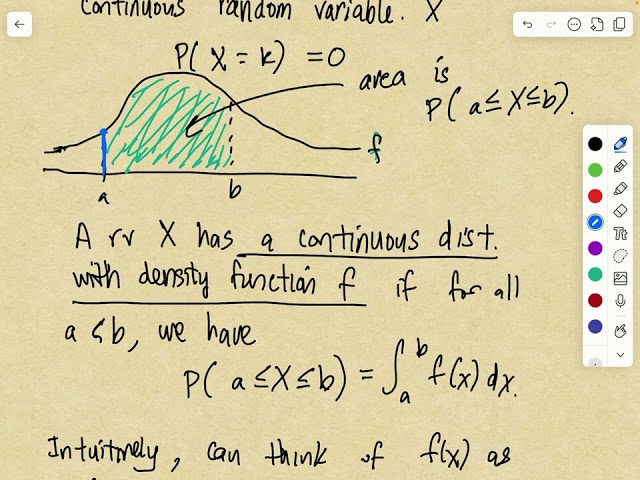 continuous random variable. X
P( X = k ) = 0
area is
P( a ≤ X ≤ b).
f
a
b
A rv X has a continuous dist.
with density function f if for all
a ≤ b, we have
P( a ≤ X ≤ b) = ∫_a^b f(x) dx.
Intuitively, can think of f(x) as
Tt